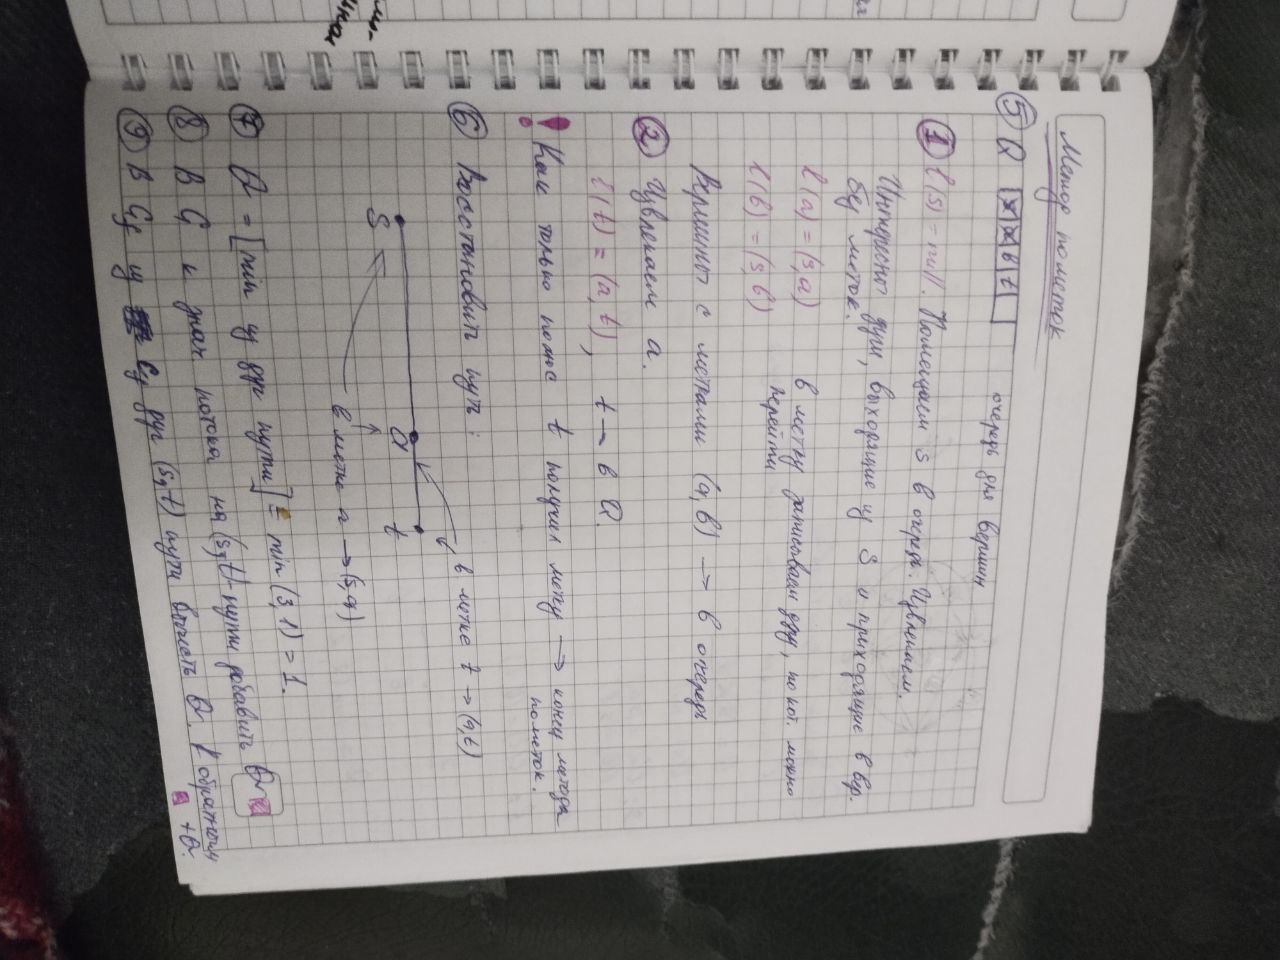 Метод пометок
5 Q в t очередь для вершин
1 l(s) = null. Помещаем s в очередь. Извлекаем.
Интересны дуги, выходящие из s и приходящие в вер.
без меток.
l(a) = (s,a) в метку записываем дугу, по кот. можно
перейти
l(в) = (s,в)
Вершины с метками (a,в) → в очередь
2 Извлекаем a.
l(t) = (a,t), t → в Q.
! Как только полюс t получил метку → конец метода
пометок.
6 Восстановить путь:
в метке t → (a,t)
s a t
в метке a → (s,a)
7 θ = [min из дуг пути] = min (3,1) = 1.
8 В G к знач. потока на (s,t)-пути добавить θ
9 В Gf из cf дуг (s,t) пути вычесть θ. К обратным
+θ.